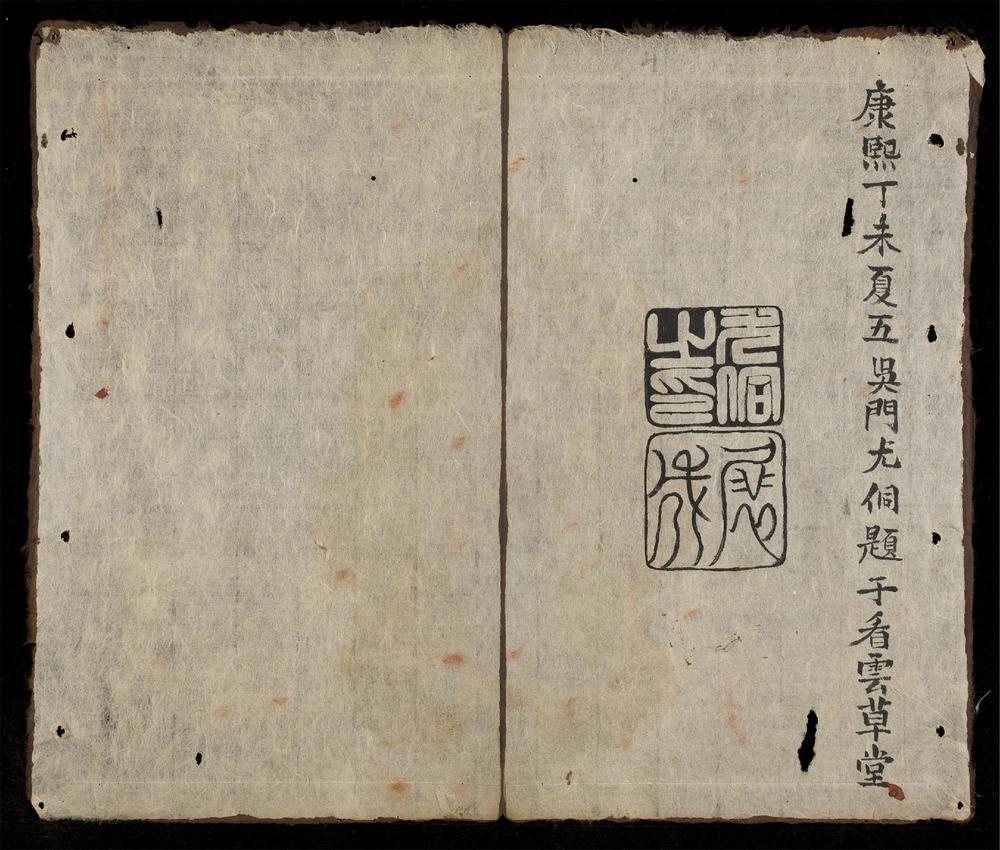 康熙丁未夏五吳門尤侗題于看雲草堂
尤侗之印
展成